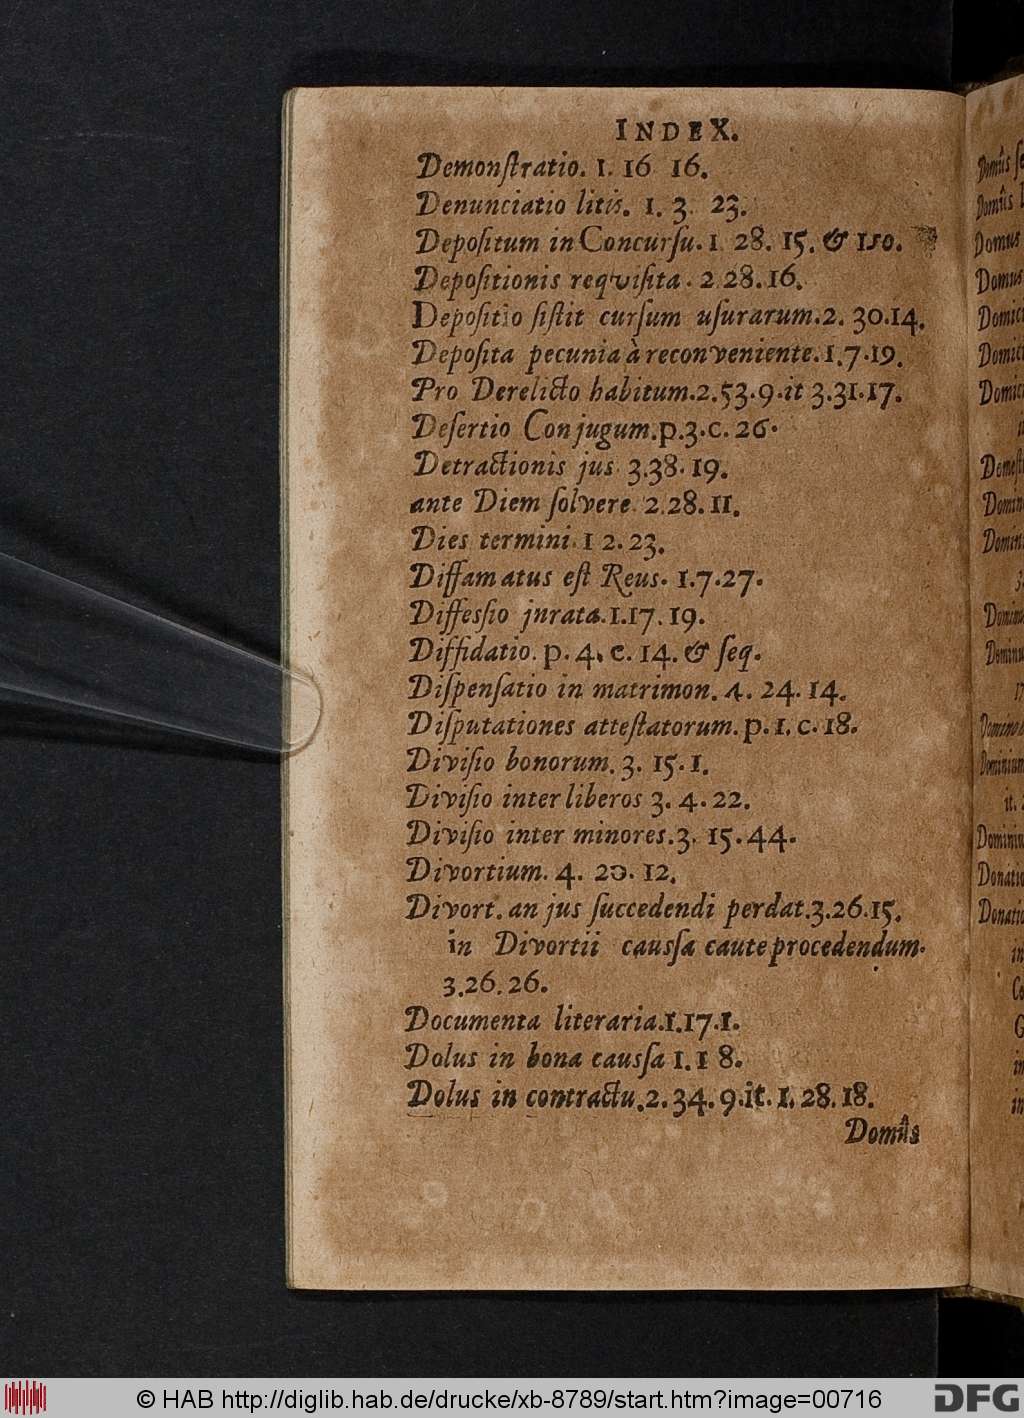 INDEX.
Demonſtratio. 1. 16 16.
Denunciatio litis. 1. 3. 23.
Depoſitum in Concurſu. 1 28. 15. & 150.
Depoſitionis requiſita. 2 28. 16.
Depoſitio ſiſtit curſum uſurarum. 2. 30. 14.
Depoſita pecunia à reconveniente. 1. 7. 19.
Pro Derelicto habitum. 2. 53. 9. it 3. 31. 17.
Deſertio Conjugum. p. 3. c. 26.
Detractionis jus 3. 38. 19.
ante Diem ſolvere. 2. 28. 11.
Dies termini. 1 2. 23.
Diffamatus eſt Reus. 1. 7. 27.
Diffeſſio jnrata. 1. 17. 19.
Diffidatio. p. 4. c. 14. & ſeq.
Diſpenſatio in matrimon. 4. 24. 14.
Diſputationes atteſtatorum. p. 1. c. 18.
Diviſio bonorum. 3. 15. 1.
Diviſio inter liberos 3. 4. 22.
Diviſio inter minores. 3. 15. 44.
Divortium. 4. 20. 12.
Divort. an jus ſuccedendi perdat. 3. 26. 15.
in Divortii cauſſa caute procedendum.
3. 26. 26.
Documenta literaria. 1. 17. 1.
Dolus in bona cauſſa 1. 1 8.
Dolus in contractu. 2. 34. 9. it. 1. 28. 18.
Domûs
Domûs
Domûs
Domus
Domus
© HAB http://diglib.hab.de/drucke/xb-8789/start.htm?image=00716
DFG